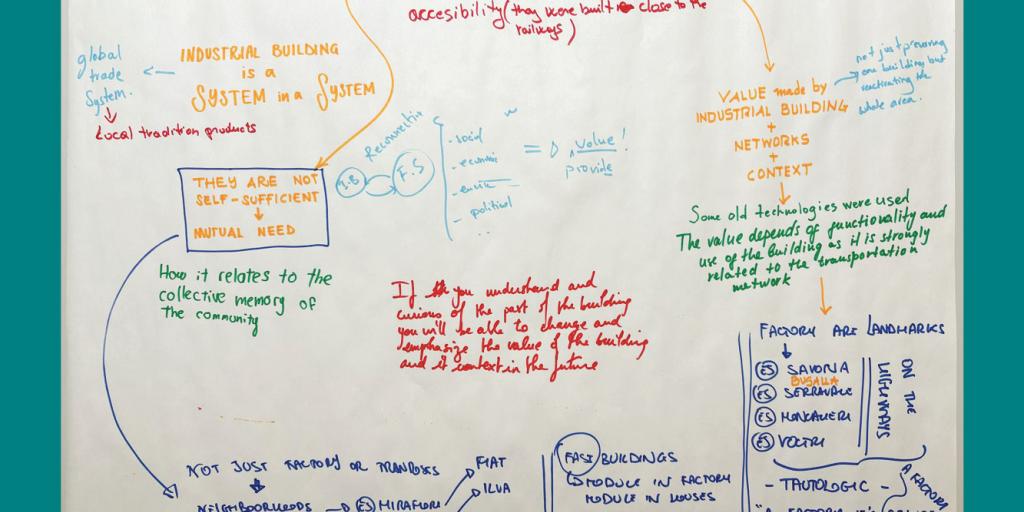 accesibility (they were built close to the
railways)
global
trade
system.
Local tradition products
INDUSTRIAL BUILDING
is a
SYSTEM in a SYSTEM
not just preserving
one building but
reactivating the
whole area.
VALUE made by
INDUSTRIAL BUILDING
+
NETWORKS
+
CONTEXT
THEY ARE NOT
SELF-SUFFICIENT
MUTUAL NEED
I.B
F.S
- social
- economic
- political
..
= value!
provide
How it relates to the
collective memory of
the community
If you understand and
curious of the past of the building
you will be able to change and
emphasize the value of the building
and it context in the future
Some old technologies were used
The value depends of functionality and
use of the building as it is strongly
related to the transportation
network
FACTORY ARE LANDMARKS
ES SAVONA
BUSALLA
ES SERRAVALE
ES MONCALIERI
ES VOLTRI
ON THE
HIGHWAYS
- TAUTOLOGIC -
A FACTORY
NOT JUST FACTORY OR
NEIGHBOORHOODS
ES MIRAFIORI
FIAT
ILVA
FAST BUILDINGS
MODULE IN FACTORY
MODULE IN HOUSES